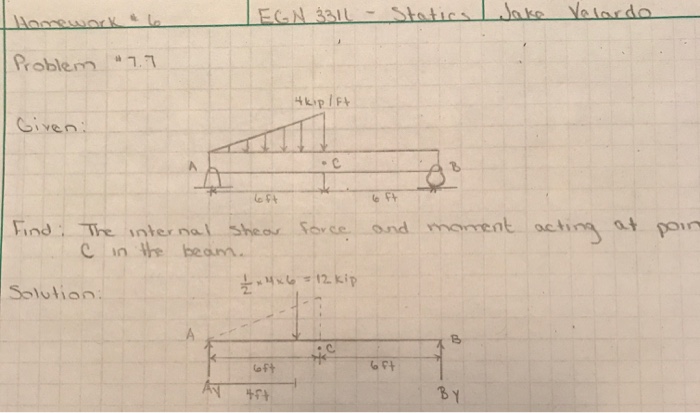 Homework # 6 EGN 3311 - Statics Jake Valardo
Problem # 7.7
4kip/ft
Given:
A . C B
6ft 6 ft
Find: The internal shear force and moment acting at poin
C in the beam.
1/2 × 4 × 6 = 12 kip
Solution:
A B
. C
6ft 6ft
Ay 4ft By